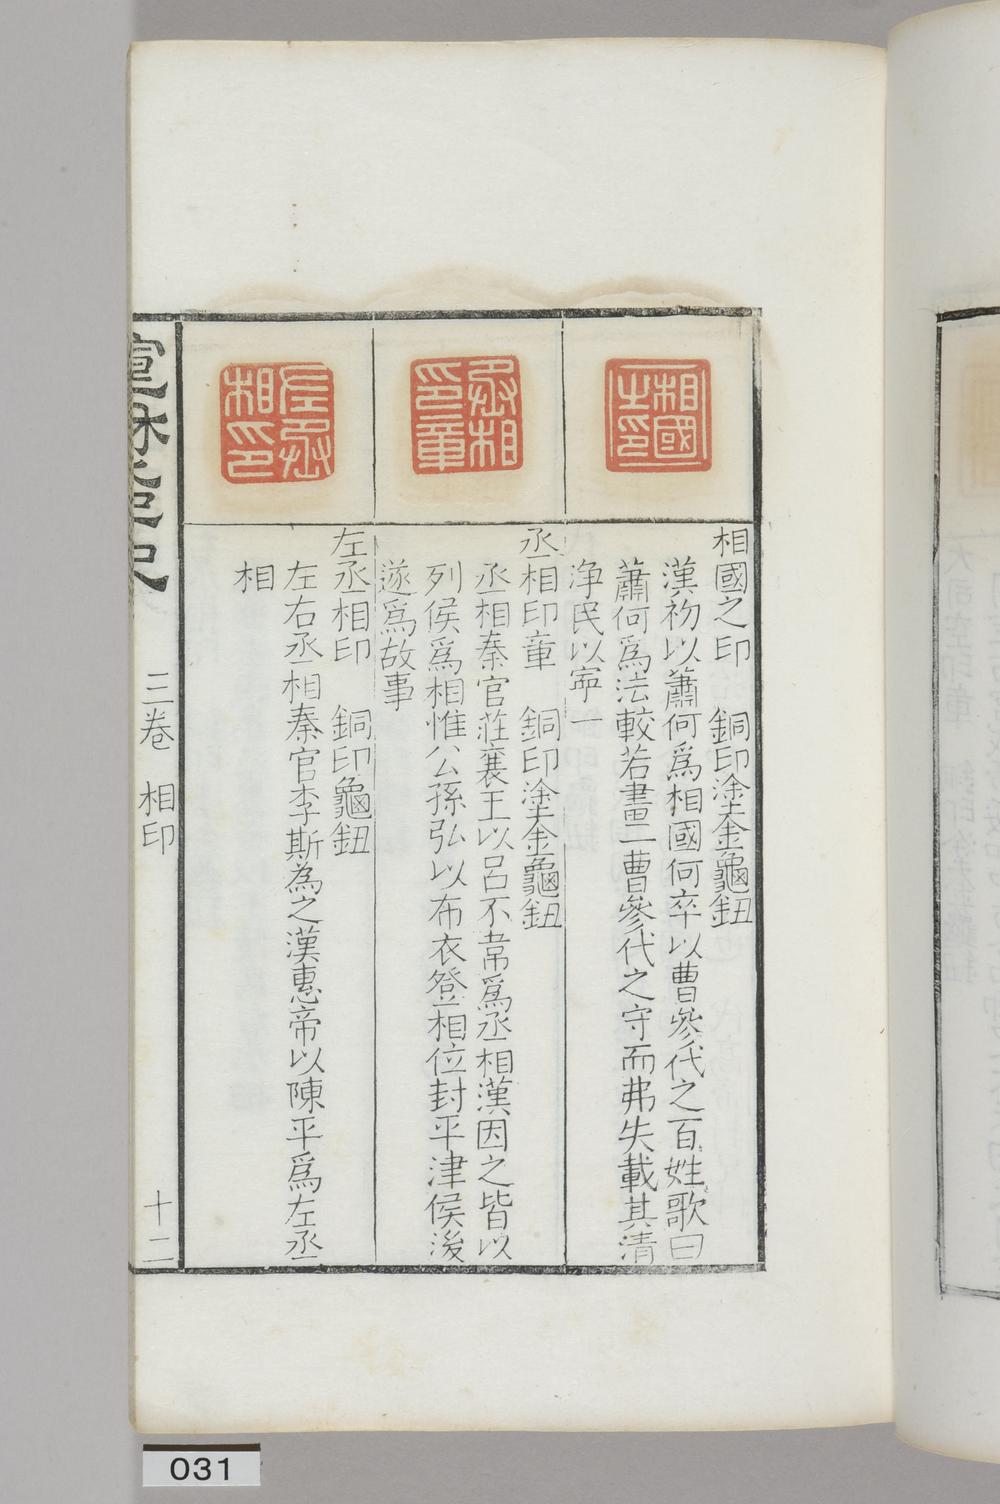 相國之印
丞相印章
左丞相印
相國之印　銅印塗金龜鈕
漢初以蕭何爲相國何卒以曹參代之百姓歌曰
蕭何爲法較若畫一曹參代之守而弗失載其清
淨民以寧一
丞相印章　銅印塗金龜鈕
丞相秦官莊襄王以呂不韋爲丞相漢因之皆以
列侯爲相惟公孫弘以布衣登相位封平津侯後
遂爲故事
左丞相印　銅印龜鈕
左右丞相秦官李斯為之漢惠帝以陳平爲左丞
相
三卷　相印　十二
031